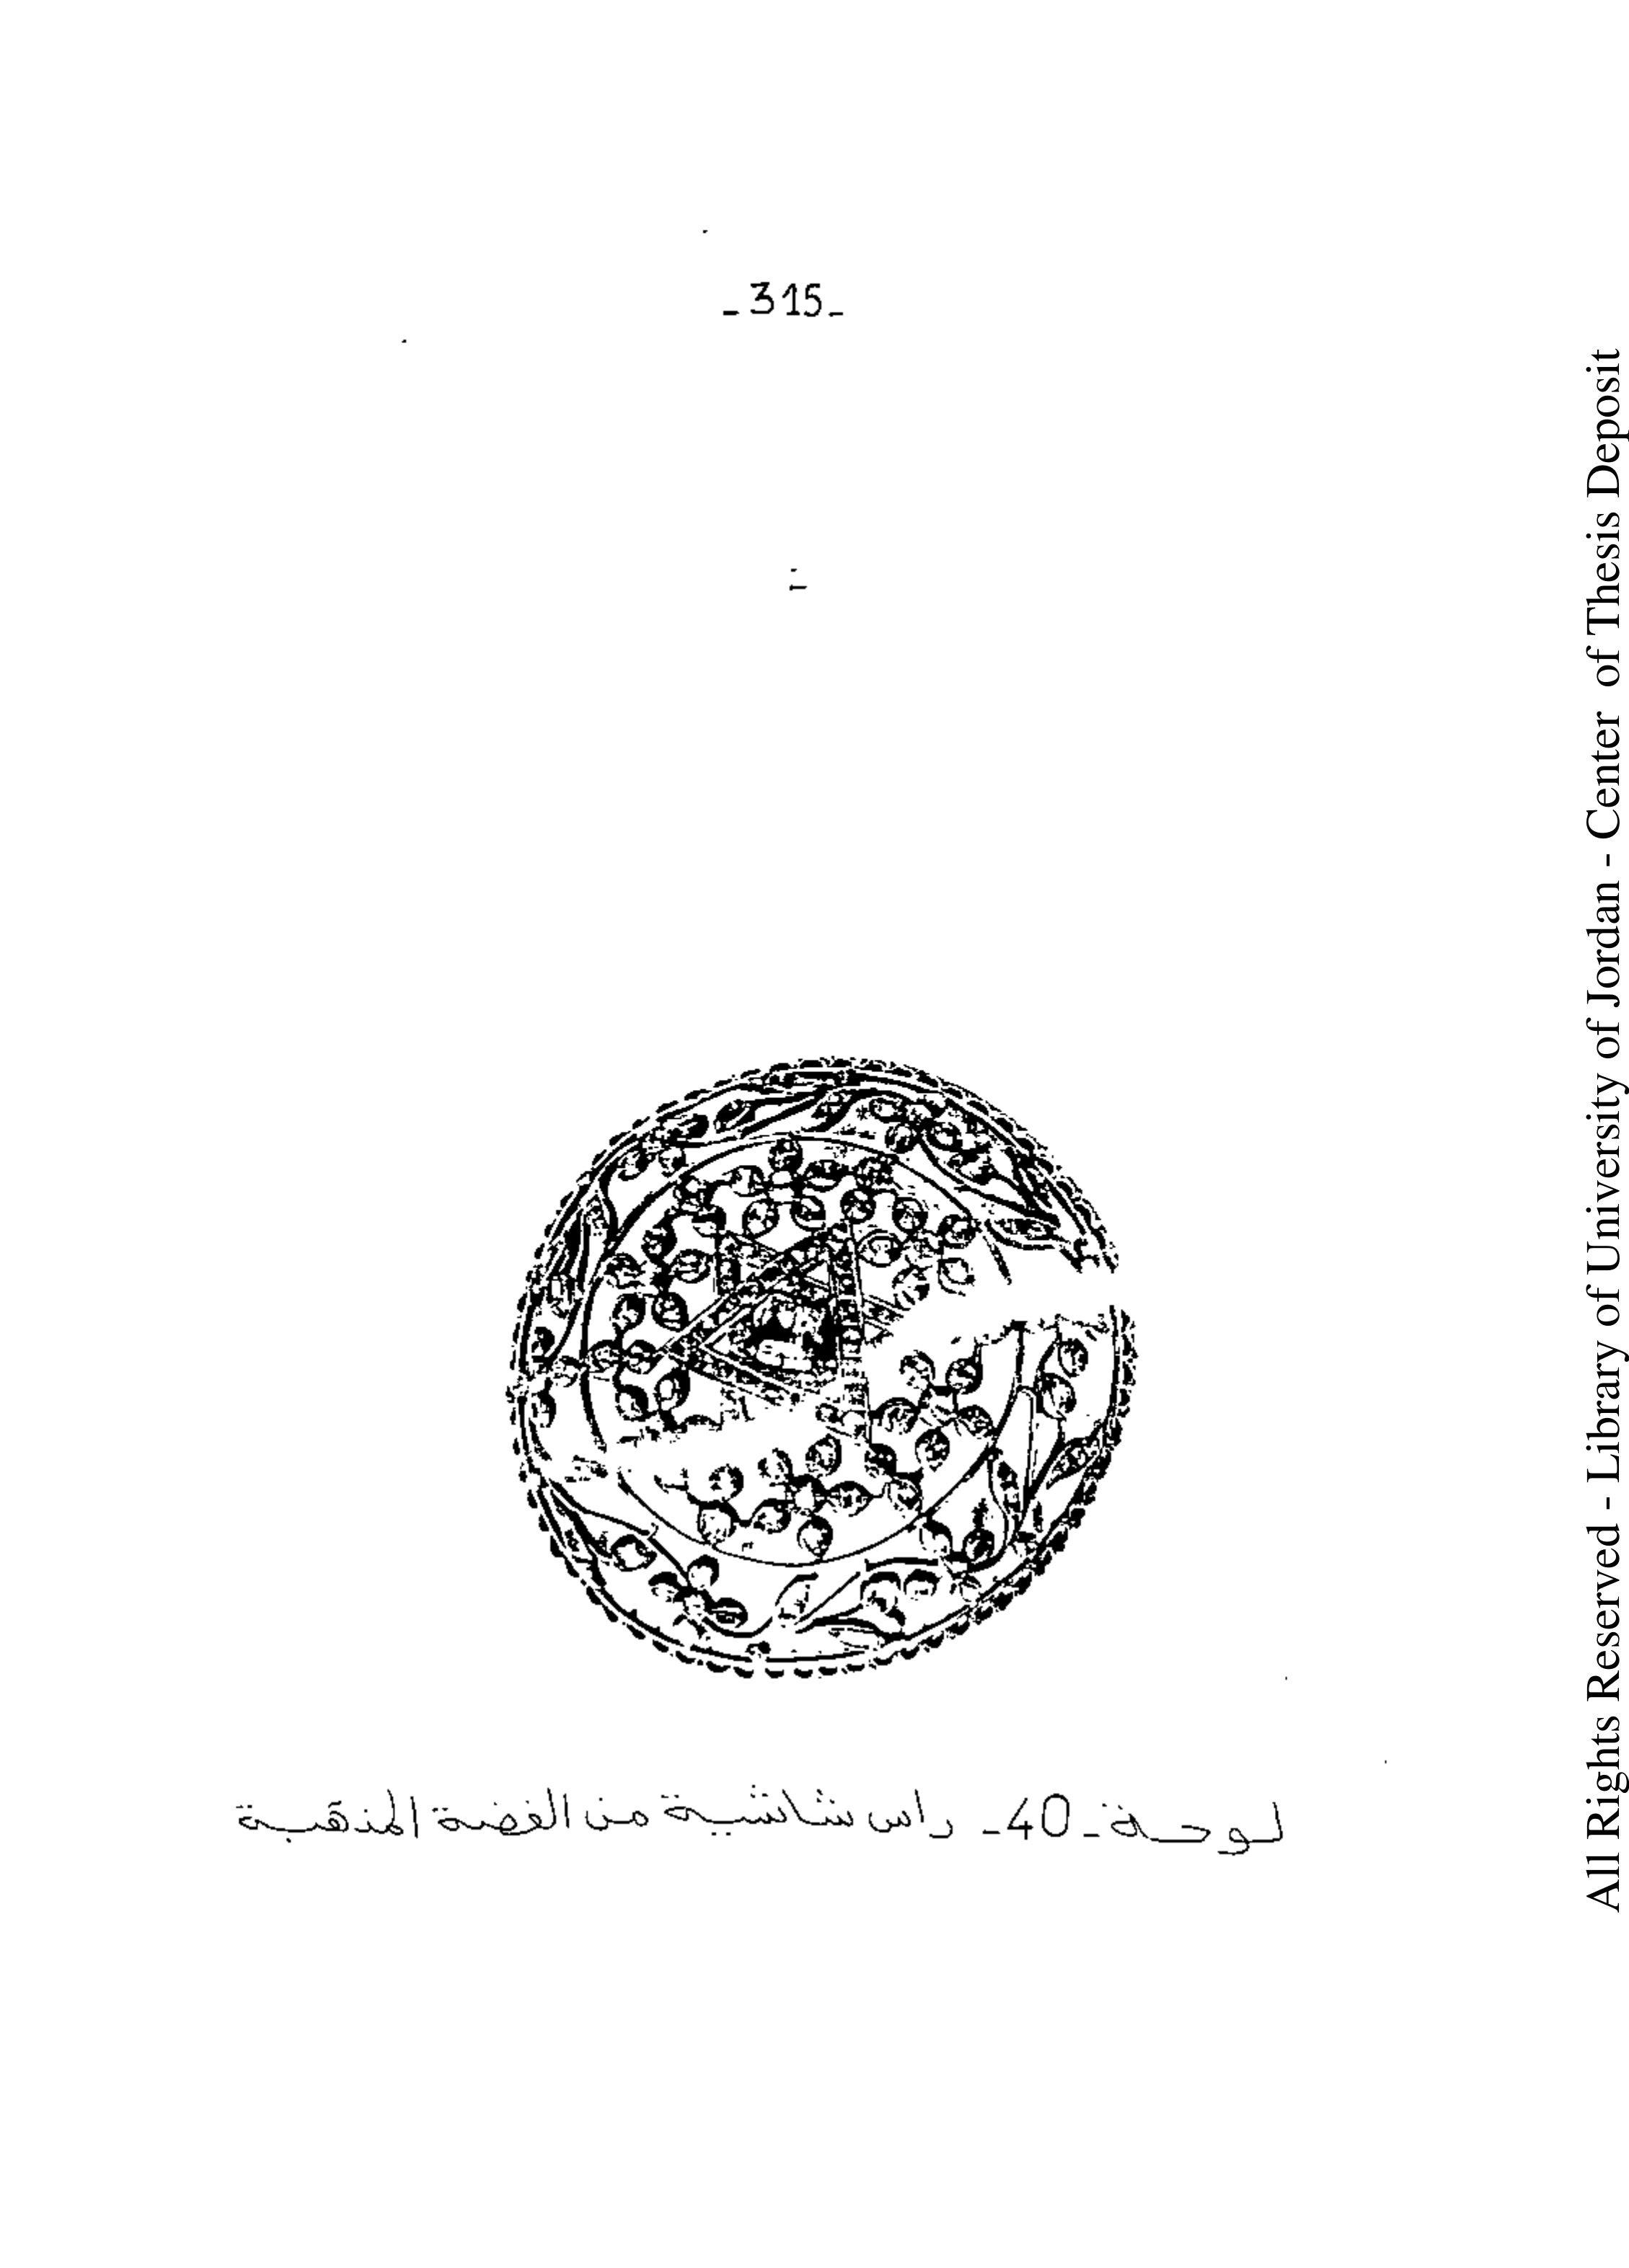 -315-
لوحة -40- راس شاشية من الفضة المذهبة
All Rights Reserved - Library of University of Jordan - Center of Thesis Deposit